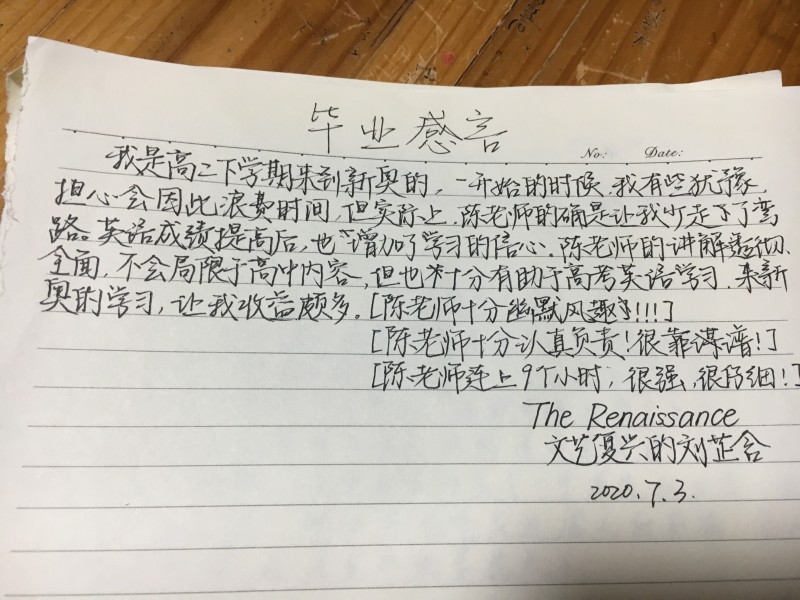 毕业感言
No: Date:
我是高二下学期来到新奥的,一开始的时候,我有些犹豫,
担心会因此浪费时间,但实际上,陈老师的确是让我少走了弯
路。英语成绩提高后,也增加了学习的信心。陈老师的讲解透彻、
全面,不会局限于高中内容,但也十分有助于高考英语学习。来新
奥的学习,让我收益颇多。[陈老师十分幽默风趣!!!!]
[陈老师十分认真负责!很靠谱!]
[陈老师连上9个小时,很强,很仔细!]
The Renaissance
文艺复兴的刘芷含
2020.7.3.